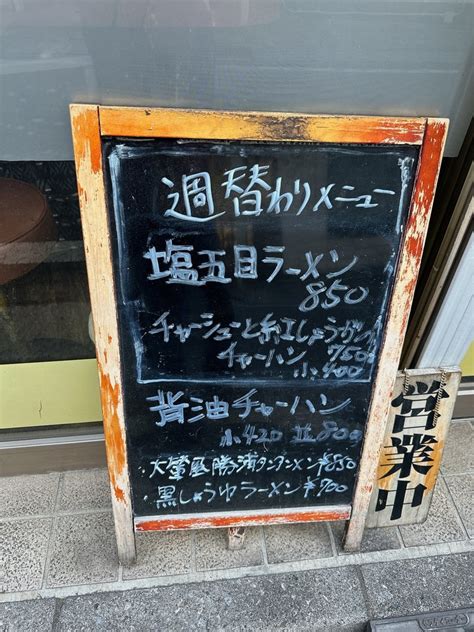 週替わりメニュー
塩五目ラーメン
850
チャーシューと紅しょうがの
チャーハン 750
小400
背油チャーハン
小420 並800
・大螢屋勝浦タンタンメン¥850
・黒しょうゆラーメン¥900
営業中